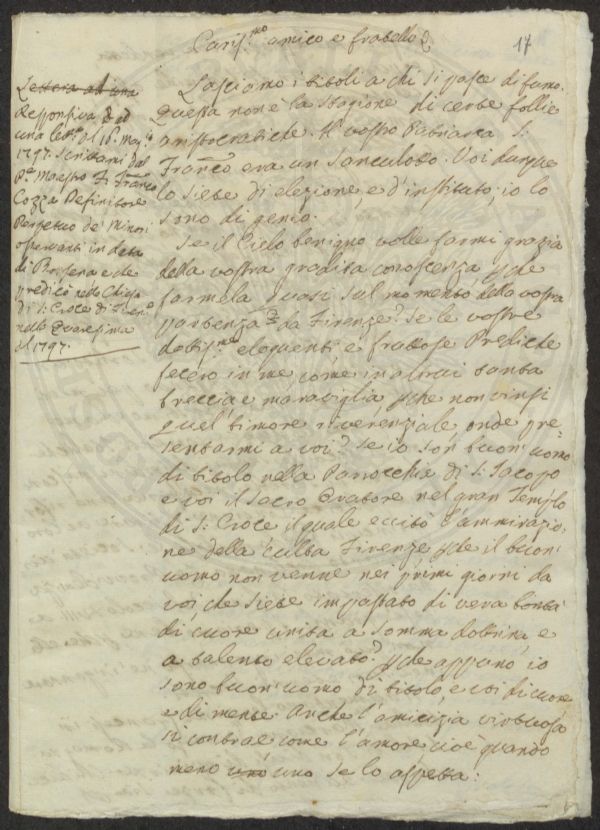 17
Caris.mo amico e fratello
Lettera ad una
Responsiva ad
una lett.a del 16. Mag.o
1797. Scrittami dal
P.re Maestro F. Franco
Cozza Definitore
Perpetuo de' Minori
Osservanti in data
di e che
predicò nella Chiesa
di S. Croce di Firen.e
nella Quaresima
del 1797.
Lasciamo i titoli a chi si pasce di fumo.
Questa non è la stagione di certe follie
aristocratiche. Il vostro Patriarca S.
Franc.o era un sanculotto. Voi dunque
lo siete di elezione, e d'instituto; io lo
sono di genio.
Se il Cielo benigno volle farmi grazia
della vostra gradita conoscenza, pche
farmela quasi sul momento della vostra
partenza da Firenze? Se le vostre
dottis.me eloquenti e fruttose Prediche
fecero in me come in altrui tanta
breccia e maraviglia pche non vinsi
quel timore riverenziale onde pre=
sentarmi a voi? Se io son buon'uomo
di titolo nella Parrocchia di S. Jacopo
e voi il Sacro Oratore nel gran Templo
di S. Croce il quale eccitò l'ammirazio=
ne della culta Firenze pche il buon'
uomo non venne nei primi giorni da
voi che siete impastato di vera bontà
di cuore unita a somma dottrina, e
a talento elevato? pche appunto io
sono buon'uomo di titolo, e voi di cuore
e di mente. Anche l'amicizia virtuosa
si contrae come l'amore cioè quando
meno uno se lo aspetta: